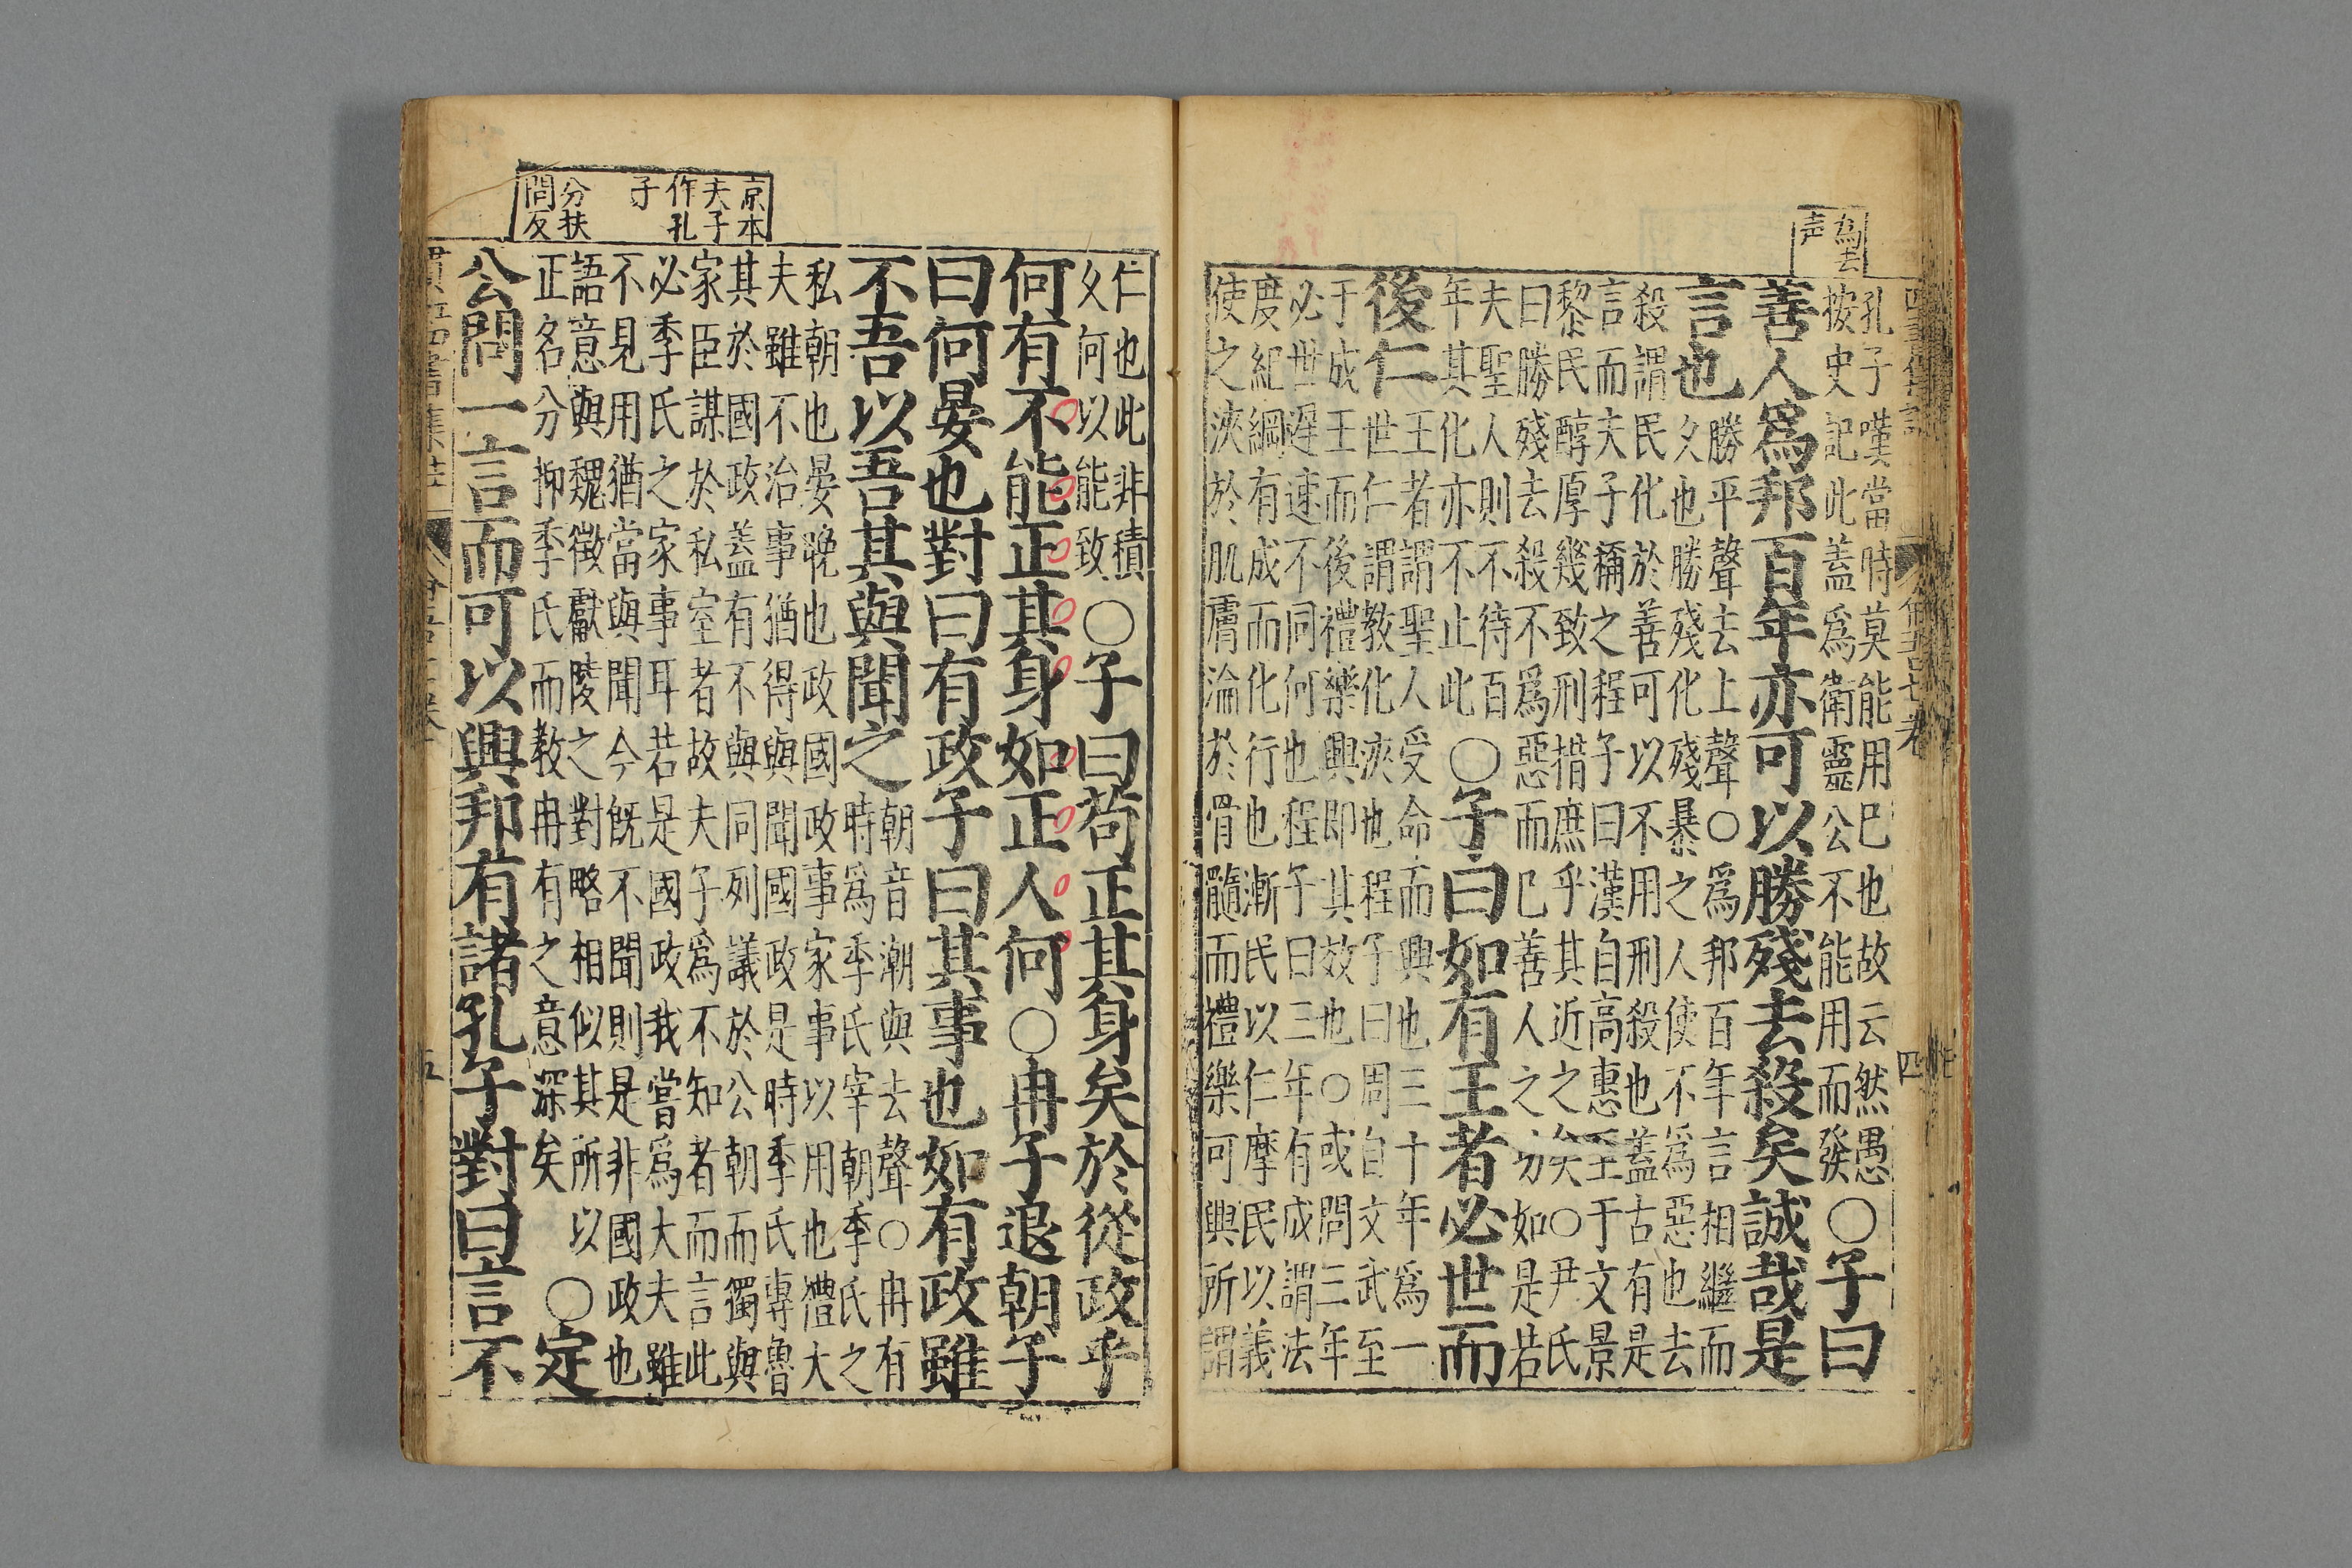 為去
声
孔子嘆當時莫能用已也故云然愚
按史記此蓋爲衛靈公不能用而發
○子曰
善人爲邦百年亦可以勝殘去殺矣誠哉是
言也
勝平聲去上聲○爲邦百年言相繼而
久也勝殘化殘暴之人使不爲惡也去
殺謂民化於善可以不用刑殺也蓋古有是
言而夫子稱之程子曰漢自高惠至于文景
黎民醇厚幾致刑措庶乎其近之矣○尹氏
曰勝殘去殺不爲惡而已善人之功如是若
夫聖人則不待百
年其化亦不止此
○子曰如有王者必世而
後仁
王者謂聖人受命而興也三十年爲一
世仁謂教化浹也程子曰周自文武至
于成王而後禮樂興即其效也○或問三年
必世遲速不同何也程子曰三年有成謂法
度紀綱有成而化行也漸民以仁摩民以義
使之浹於肌膚淪於骨髓而禮樂可興所謂
四
京本
夫子
作孔
子
分扶
問反
仁也此非積
久何以能致
○子曰苟正其身矣於從政乎
何有不能正其身如正人何○冉子退朝子
曰何晏也對曰有政子曰其事也如有政雖
不吾以吾其與聞之
朝音潮與去聲○冉有
時爲季氏宰朝季氏之
私朝也晏晚也政國政事家事以用也禮大
夫雖不治事猶得與聞國政是時季氏專魯
其於國政蓋有不與同列議於公朝而獨與
家臣謀於私室者故夫子爲不知者而言此
必季氏之家事耳若是國政我嘗爲大夫雖
不見用猶當與聞今既不聞則是非國政也
語意與魏徵獻陵之對略相似其所以
正名分抑季氏而教冉有之意深矣
○定
公問一言而可以興邦有諸孔子對曰言不